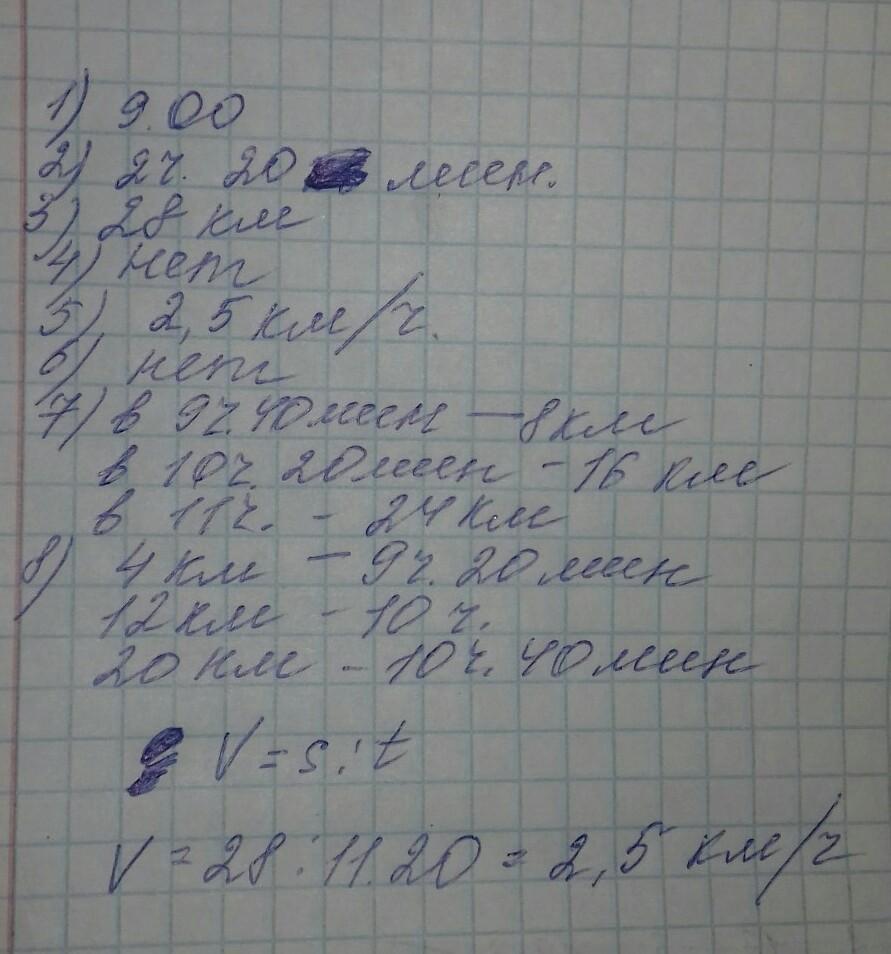 1) 9.00
2) 2ч. 20 мин.
3) 28 км
4) нет
5) 2,5 км/ч.
6) нет
7) в 9ч.40мин – 8км
в 10ч. 20мин - 16 км
в 11ч. - 24 км
8) 4 км – 9ч. 20 мин
12 км - 10 ч.
20 км - 10ч. 40 мин
V = s : t
V = 28 : 11.20 = 2,5 км/ч